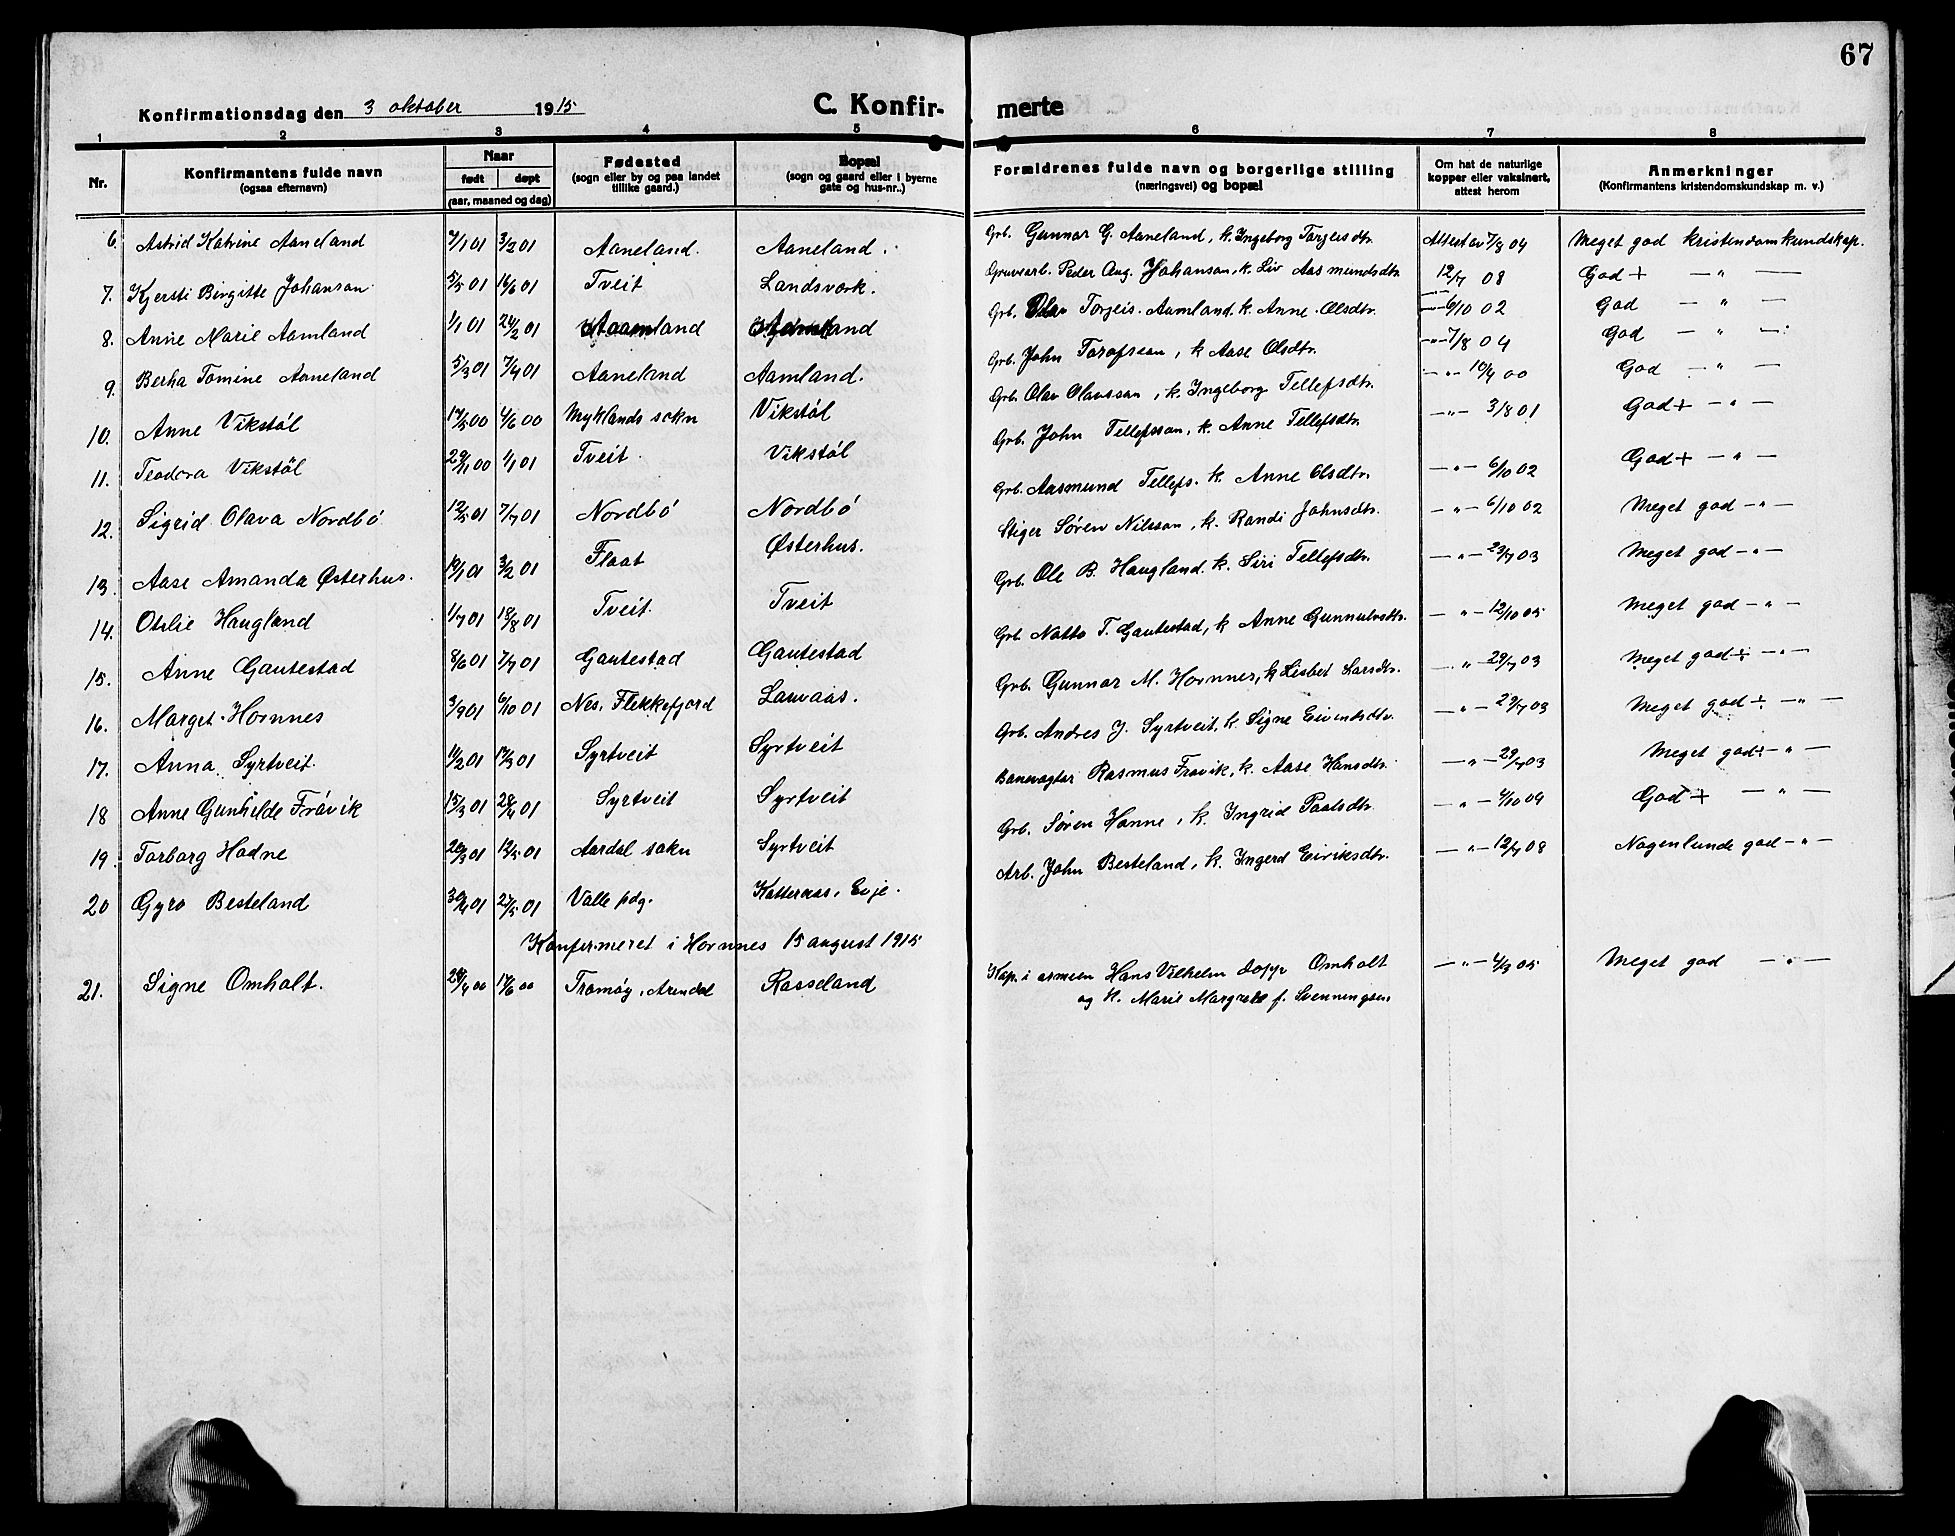 67
Konfirmationsdag den 3 oktober 1915 C. Konfir- merte
1 2 3 4 5 6 7 8
Nr. Konfirmantens fulde navn (ogsaa efternavn) Naar født døpt (aar, maaned og dag) Fødested (sogn eller by og paa landet tillike gaard.) Bopæl (sogn og gaard eller i byerne gate og hus-nr..) Forældrenes fulde navn og borgerlige stilling (næringsvei) og bopæl Om hat de naturlige kopper eller vaksinert, attest herom Anmerkninger (Konfirmantens kristendomskundskap m. v.)
6. Astrid Katrine Aaneland 7/1 01 3/2 01 Aaneland. Aaneland. Grb. Gunnar G. Aaneland, k. Ingeborg Torgeisdtr. Attest av 7/8 04 Meget god kristendomkundskap.
7. Kjersti Birgitte Johanson 5/5 01 16/6 01 Tveit Landsverk. Gruvearb. Peder Aug. Johanson, k. Liv Aasmundsdtr 12/7 08 God + — " —
8. Anne Marie Aamland 1/1 01 24/2 01 Aamland Grb. Olav Torgeis. Aamland. k. Anne Olsdtr. — 6/10 02 God — " —
9. Berha Tomine Aaneland 5/3 01 7/4 01 Aaneland Aamland. Grb. John Torafsson, k Aase Olsdtr. — " — 7/8 04 God — " —
10. Anne Vikstøl 14/5 00 4/6 00 Myklands sokn Vikstøl Grb. Olav Olavsson, k. Ingeborg Tellefsdtr. — " — 10/4 00 God — " —
11. Teodora Vikstøl 29/1 00 1/1 01 Tveit Vikstøl Grb. John Tellefsson, k. Anne Tellefsdtr. — " — 3/8 01 God + — " —
12. Sigrid Olava Nordbö 12/5 01 7/7 01 Nordbö Nordbö Grb. Aasmund Tellefs. k. Anne Olsdtr. — " — 6/10 02 God + — " —
13. Aase Amanda Østerhus. 19/1 01 3/2 01 Flaat Østerhus. Stiger Søren Nilsson, k. Randi Johnsdtr. — " — 6/10 02 Meget god — " —
14. Otilie Haugland 1/7 01 18/8 01 Tveit Tveit Grb. Ole B. Haugland. k. Siri Tellefsdtr. — " — 23/7 03 Meget god — " —
15. Anne Gautestad 8/6 01 7/7 01 Gautestad Gautestad Grb Natto T. Gautestad, k Anne Gunnulvsdtr. — " — 12/10 05 Meget god — " —
16. Marget Hornnes 3/9 01 6/10 01 Nes, Flekkefjord Lauvaas. Grb. Gunnar M. Hornnes, k Lisbet Larsdtr. — " — 29/7 03 Meget god ÷ — " —
17. Anna Syrtveit. 11/2 01 17/3 01 Syrtveit Syrtveit Grb. Andres J. Syrtveit, k. Signe Eivindsdtr. — " — 29/7 03 Meget god ÷ — " —
18 Anne Gunhilde Frövik 15/3 01 28/4 01 Syrtveit Syrtveit Banevogter Rasmus Frøvik, k. Aase Hansdtr. — " — 29/7 03 Meget god ÷ — " —
19. Torborg Hodne 20/3 01 12/5 01 Aardal sokn Syrtveit Grb. Søren Honne, k. Ingrid Paalsdtr. — " — 4/10 09 God + — " —
20 Gyro Besteland 30/4 01 27/5 01 Valle pdg. Katteraas, Evje. Arb. John Besteland, k. Ingerd Eiriksdtr. — " — 12/7 08 Nogenlunde god — " —
Konfirmeret i Hornnes 15 august 1915
21. Signe Omholt. 24/4 00 17/6 00 Tromøy, Arendal Rosseland Kap. i armeen Hans Vilhelm Dopp Omholt — " — 4/3 05 Meget god — " —
og k. Marie Margrete f. Svenningsen